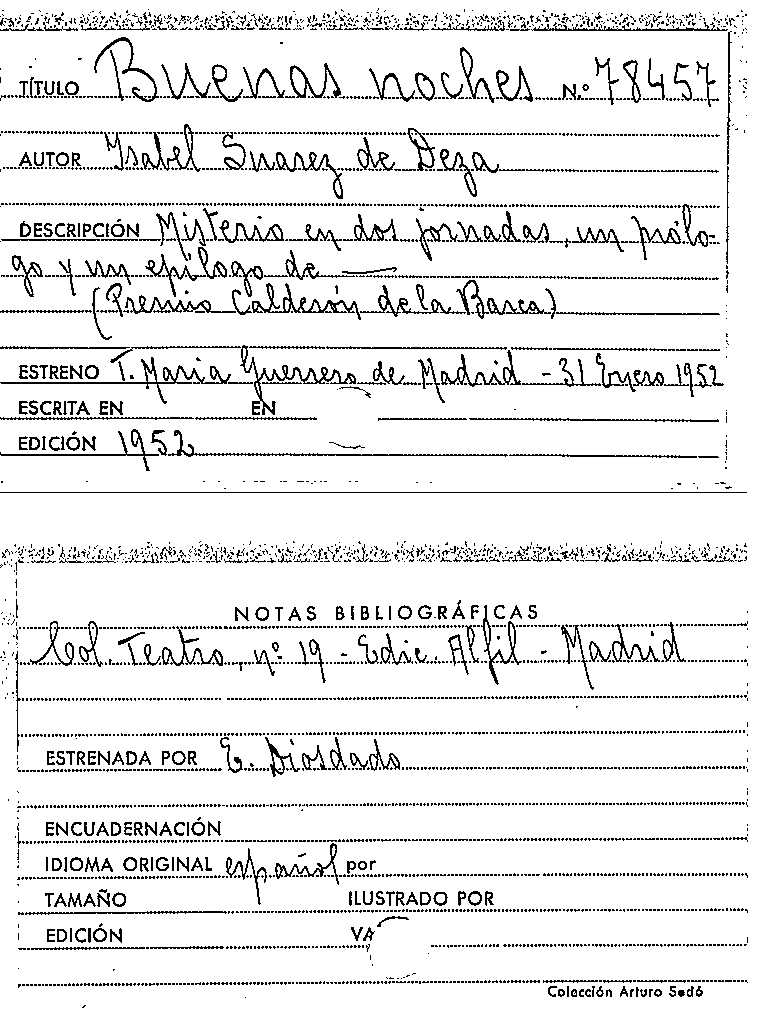 TÍTULO Buenas noches N.º 78457
AUTOR Isabel Suarez de Deza
DESCRIPCIÓN Misterio en dos jornadas, un prólo-
go y un epílogo de —
(Premio Calderón de la Barca)
ESTRENO T. Maria Guerrero de Madrid - 31 Enero 1952
ESCRITA EN EN
EDICIÓN 1952
NOTAS BIBLIOGRÁFICAS
Col. Teatro, nº 19 - Edic. Alfil - Madrid
ESTRENADA POR E. Diosdado
ENCUADERNACIÓN
IDIOMA ORIGINAL español por
TAMAÑO ILUSTRADO POR
EDICIÓN VA
Colección Arturo Sedó